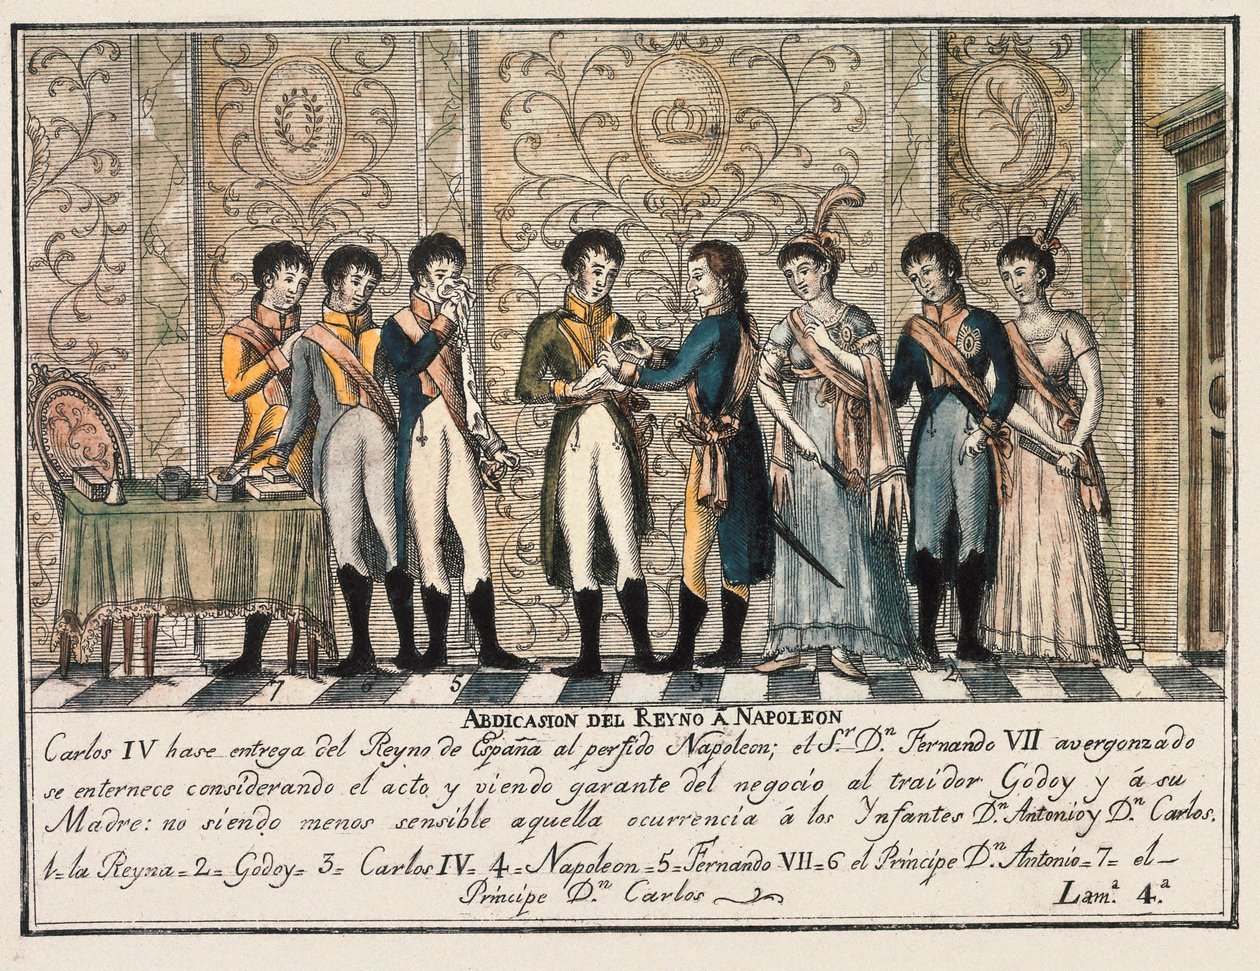 7 6 5 4 3 1 2
ABDICASION DEL REYNO Á NAPOLEON
Carlos IV hase entrega del Reyno de España al perfido Napoleon; el S.r D.n Fernando VII avergonzado
se enternece considerando el acto y viendo garante del negocio al traidor Godoy y á su
Madre: no siendo menos sensible aquella ocurrencia á los Ynfantes D.n Antonio y D.n Carlos.
1=la Reyna=2=Godoy=3=Carlos IV=4=Napoleon=5=Fernando VII=6 el Príncipe D.n Antonio=7=el
Príncipe D.n Carlos
Lam.a 4.a